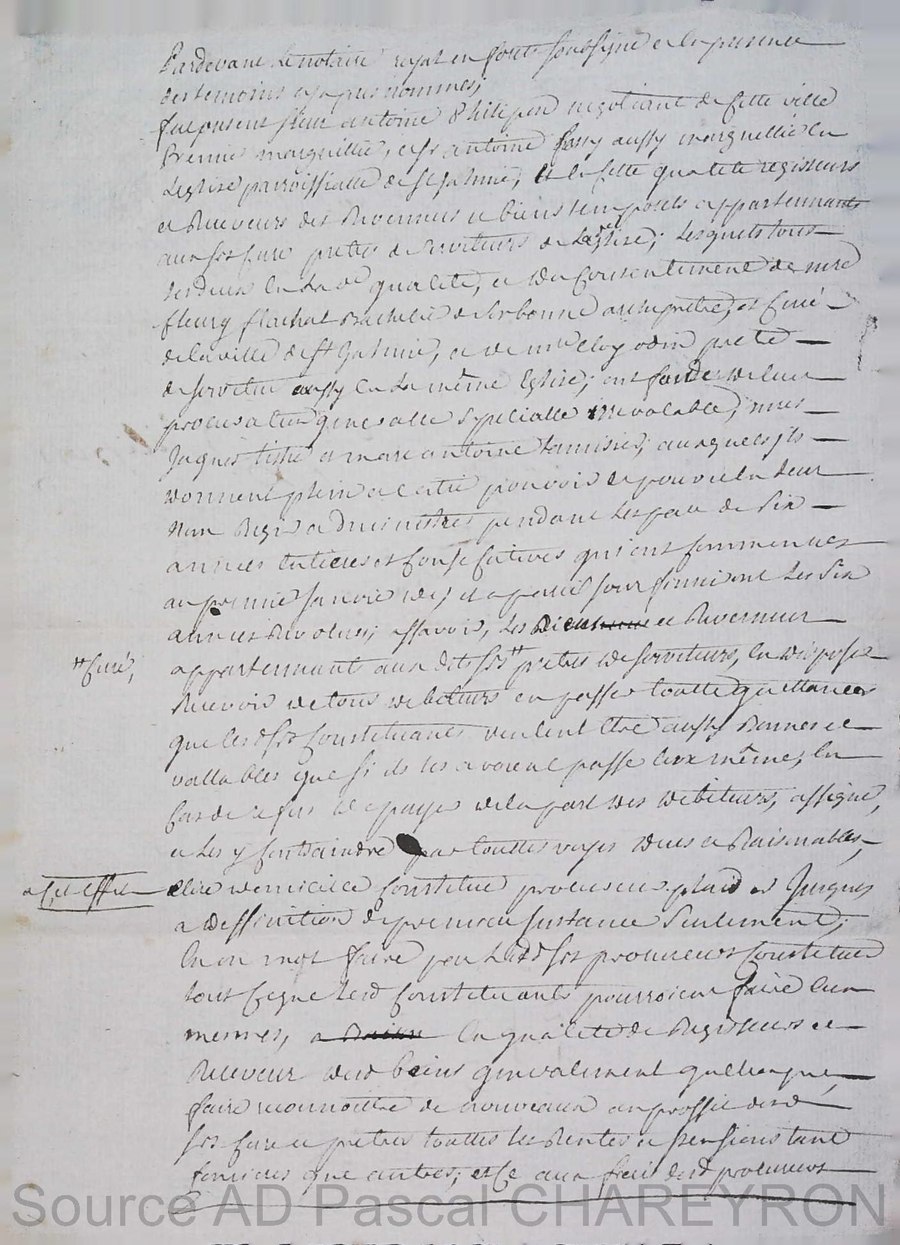 Pardevant Le notaire royal en forets soussigné et la presence
des temoins cy apres nommes;
fut present sieur antoine Philipon negotiant de cette ville
Premier marguillier, et sr antoine aussy marguillier en
Leglise parroissialle de st galmier, et en cette qualité regisseurs
et Receveurs des Revennus et biens temporels appartennants
aux srs Curé pretres deserviteurs de Laditte Eglise; Lesquels tous
deux en La de qualité, et du Consentement de mre
fleury flachat Bachelier de sorbonne archipretre, et Curé
de la ville de st galmier, et de mre eloy odin pretre
deserviteur aussy en La même Eglise; ont de leur
procuration generalle speciallle irrevocable, mres
Jaques et marc antoine tamisier; auxquels ils
donnent plein et entier pouvoir de pour et en Leur
Nom Regir administrer pendant Lespace de six
années entieres et Consecutives qui ont commencées
au premier Janvier de, et a pareil jour finiront Les six
années Revolues; assavoir, Les et Revennus
appartennant aux dits srs ++ pretres deserviteurs, en disposer
++ Curé,
Recevoir de tous debiteurs en passer toutte quittances
que les d srs Constituants veulent être aussy Bonnes et
vallables que si ils les avoient passé eux mêmes, en
Cas de refus de payer de la part des debiteurs, assigner,
et Les y Contraindre par touttes voyes dues et Raisonables,
a cet effet elire domicile Constituer procureurs plaider Jusques
a deffinition de premiere instance seulement;
En un mot faire par Lesd srs procureurs Constitues
tout Ceque Lesd Constituants pourroient faire eux
memes, en qualité de Regisseurs et
Receveur desd biens generalement quelconque,
faire reconnoitre de nouveaux au proffit desd
srs Curé et pretres touttes Les Rentes et pensions tant
foncieres que autres; et Ce aux frais desd procureurs
Source AD Pascal CHAREYRON